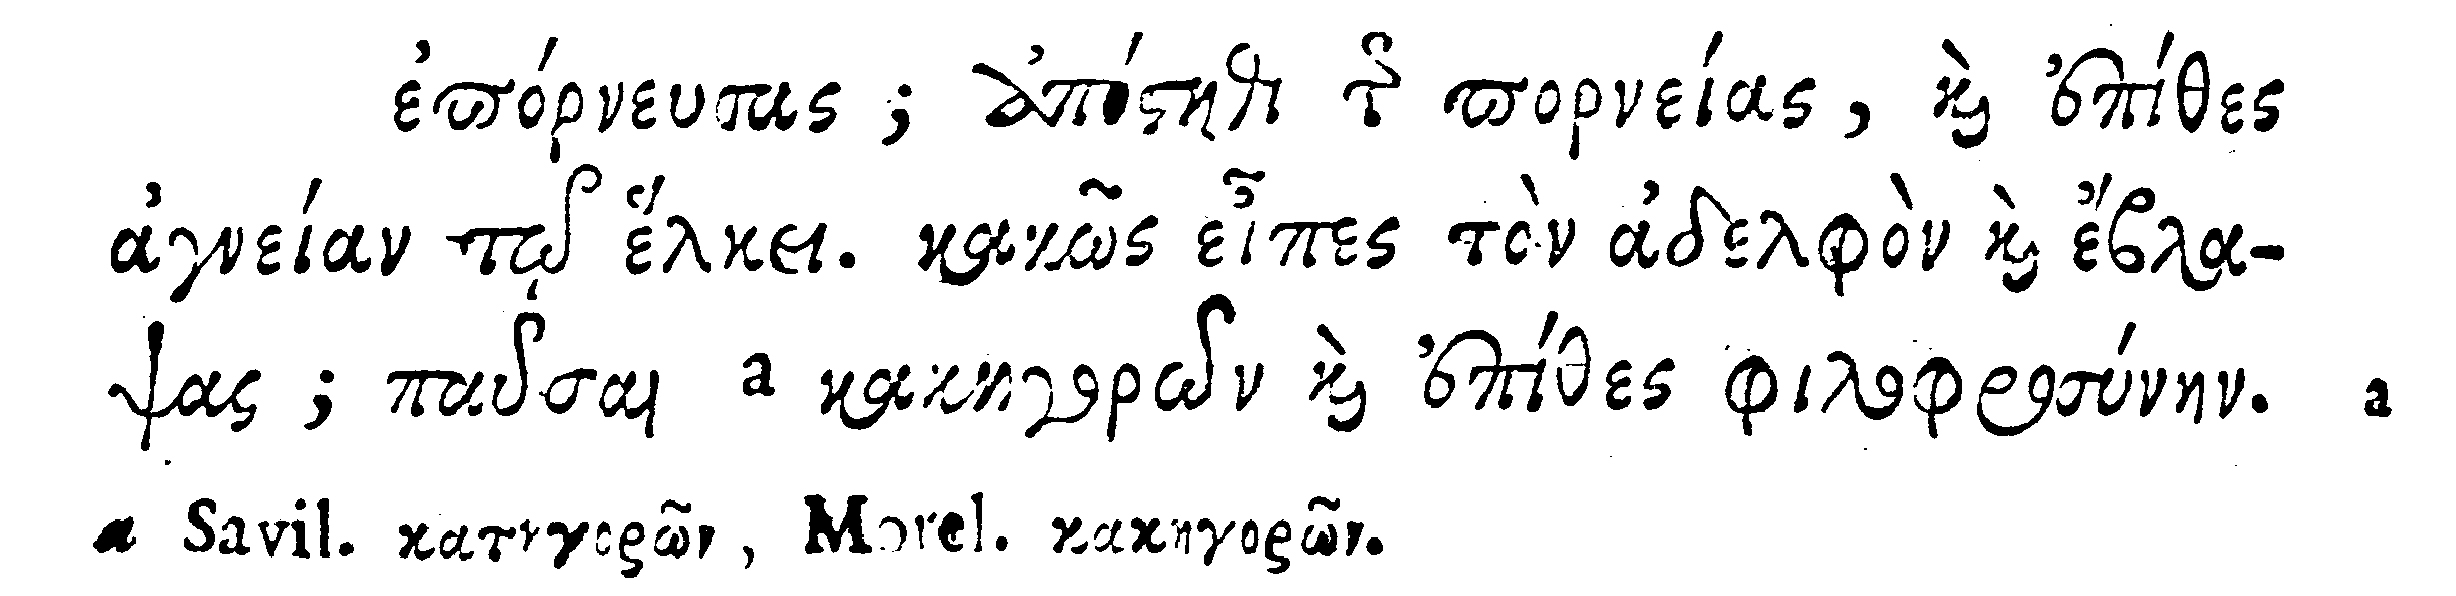 ἐπόρνευσας ; ἀπόστηθι τῆς πορνείας, καὶ ἐπίθες
ἁγνείαν τῷ ἕλκει. κακῶς εἶπες τὸν ἀδελφὸν καὶ ἔβλα-
ψας ; παῦσαι a κακηγορῶν καὶ ἐπίθες φιλοφροσύνην. a
a Savil. κατηγορῶν, Morel. κακηγορῶν.